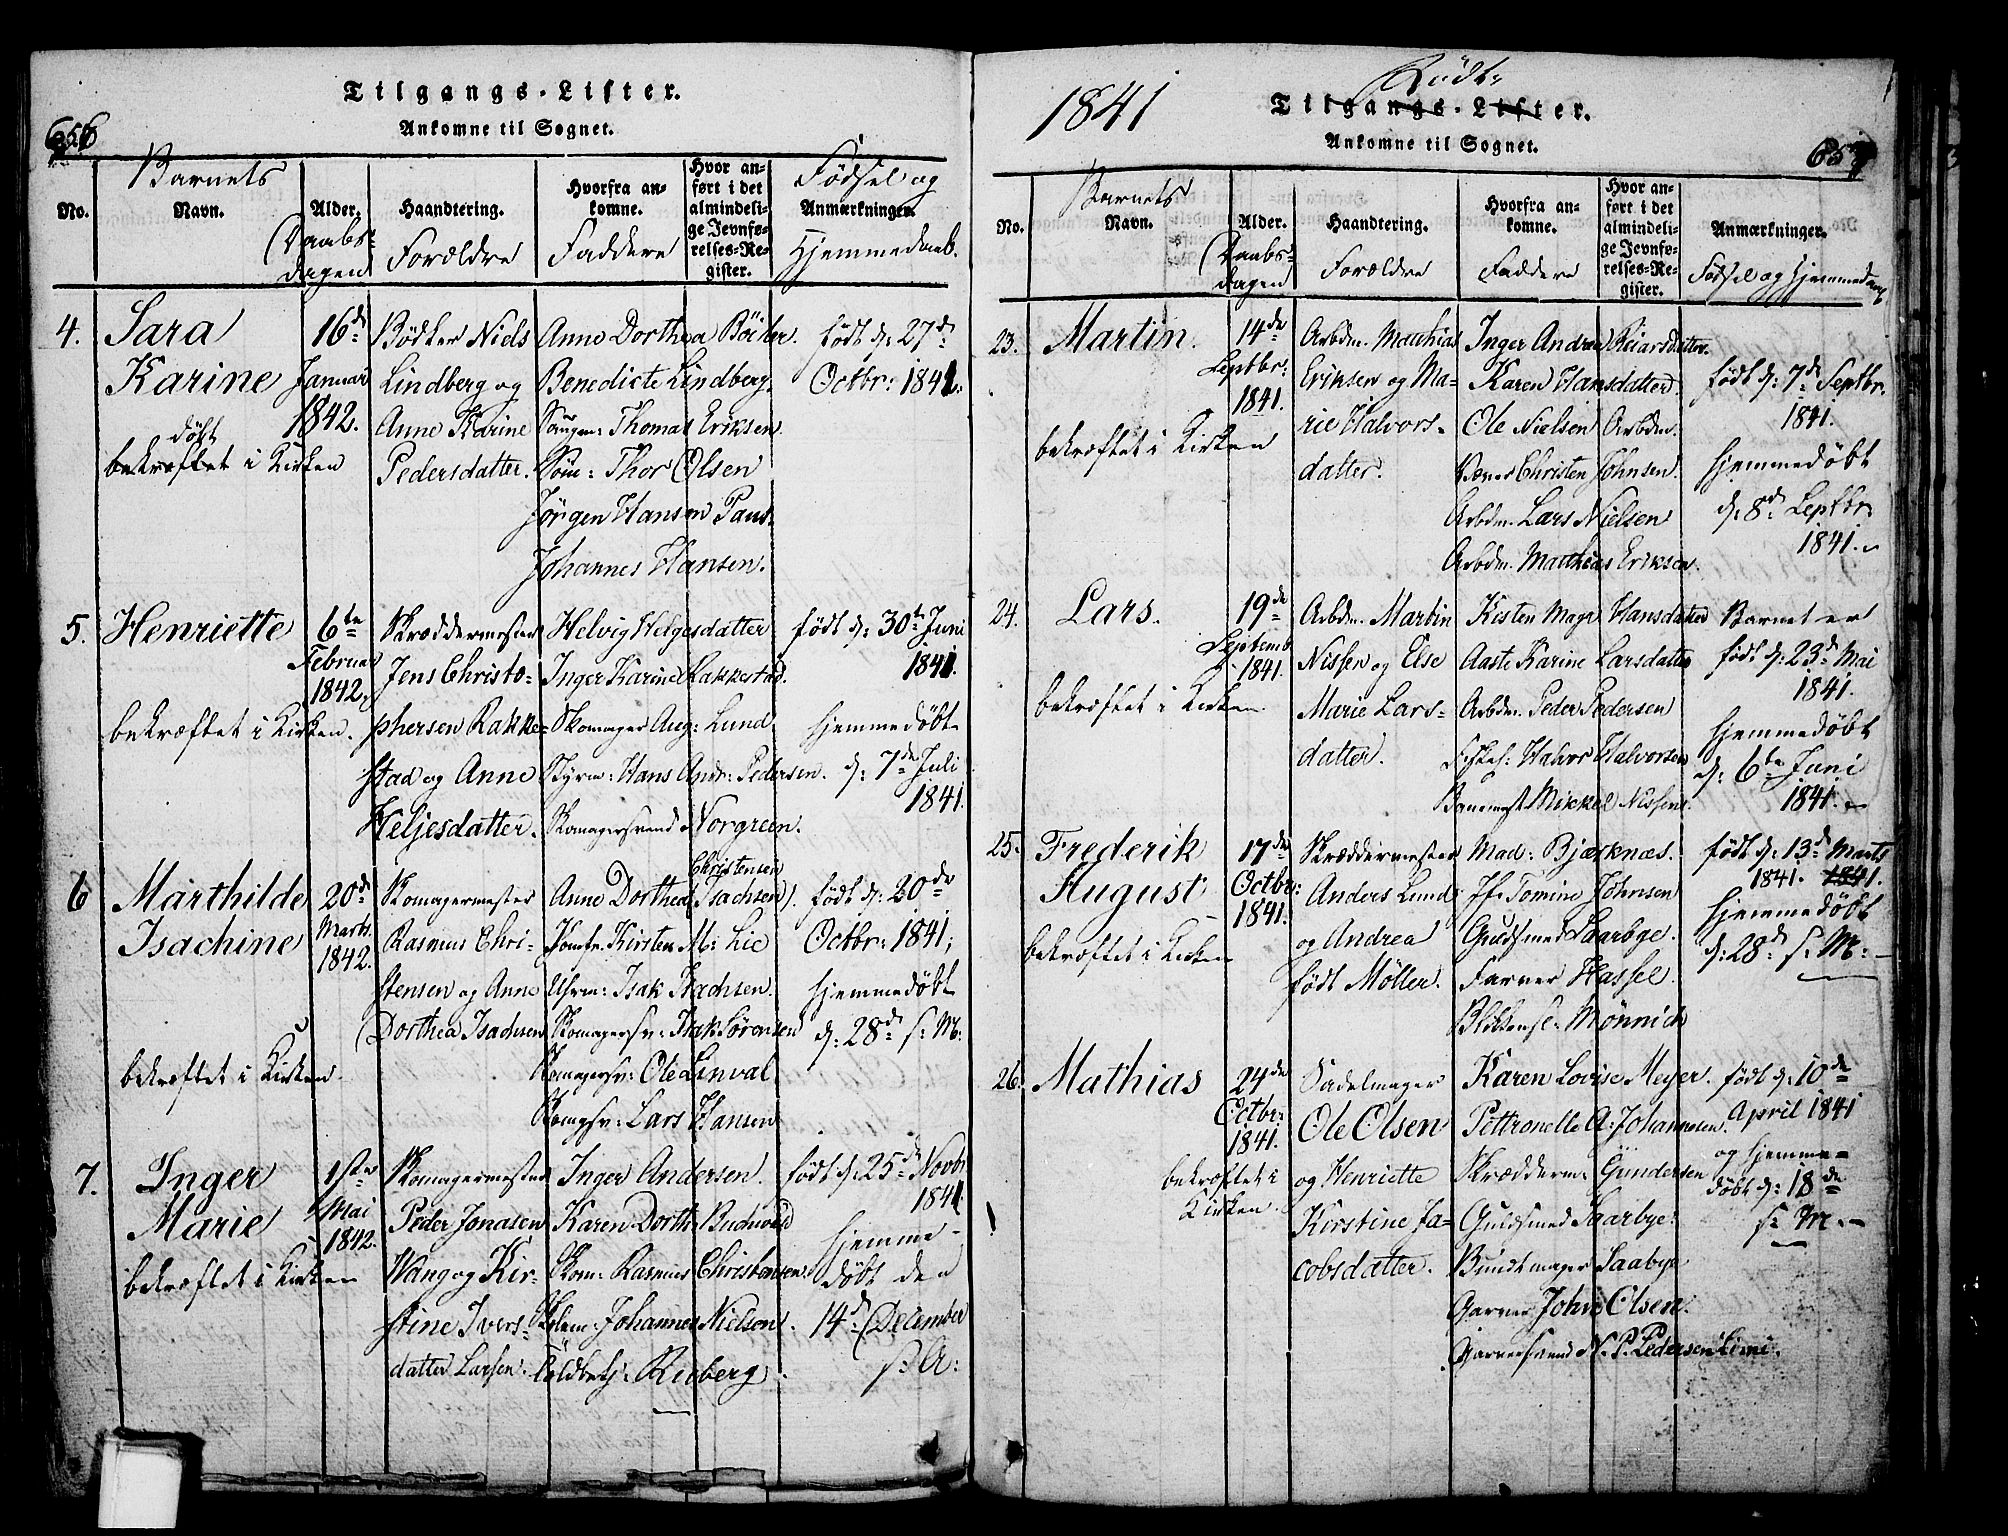 Tilgangs-Lister.
Ankomne til Sognet.
656
Barnets
Fødsel og
No.
Navn.
Alder.
Haandtering.
Hvorfra an-
komne.
Hvor an-
ført i det
almindeli-
ge Jevnfø-
relses-Re-
gister.
Anmærkninger.
Daabs-
dagen
Forældre
Faddere
Hjemmedaab.
4.
Sara
Karine
døbt
bekræftet i Kirken
16de
Januar
1842.
Bødker Niels
Lindberg og
Anne Karine
Pedersdatter.
Anne Dorthea Böcker.
Benedicte Lindberg.
Thomas Eriksen
Thor Olsen
Jörgen Hansen Paus
Johannes Hansen.
født d: 27de
Octbr: 1841.
5.
Henriette
bekræftet i Kirken.
6te
Februar
1842.
Skræddermester
Jens Christo-
phersen Rakke-
stad og Anne
Heljesdatter.
Helvig Helgesdatter
Inger Karine Rakkestad.
Skomager Aug: Lund
Styrm: Hans Andr: Pedersen.
Skomagersvend Norgreen.
født d: 30te Juni
1841.
hjemmedøbt
d: 7de Juli
1841.
6
Marthilde
Isachine
bekræftet i Kirken.
20de
Marts
1842.
Skomagermester
Rasmus Chri-
stensen og Anne
Dorthea Isachsen
Christensen
Anne Dorthea (Isachsen).
Jomfr: Kirsten M: Lie
Isak Isachsen.
Skomagersv: Isak Sörensen
Skomagersv: Ole Linval
Skomgsv: Lars Hansen
født d: 20de
Octbr: 1841;
hjemmedøbt
d: 28de s: M:
7.
Inger
Marie
bekræftet i Kirken
1ste
Mai
1842.
Skomagermester
Peder Jonasen
Wang og Kir-
stine Ivers-
datter Larsen.
Inger Andersen.
Karen Dorth: Buchwald
Skom: Rasmus Christensen
Johannes Nielson.
Toldbetj: Ruberg.
født d: 25de Novbr
1841
hjemme-
døbt den
14de December
s: A:
1841
Fødte
Tilgangs-Lister.
Ankomne til Sognet.
657
Barnets
No.
Navn.
Alder.
Haandtering.
Hvorfra an-
komne.
Hvor an-
ført i det
almindeli-
ge Jevnfø-
relses-Re-
gister.
Anmærkninger.
Daabs-
dagen
Forældre
Faddere
Fødsel og Hjemmedaab
23.
Martin.
bekræftet i Kirken
14de
Septbr:
1841.
Arbdm. Matthias
Eriksen og Ma-
rie Halvors-
datter.
Inger Andrea Reiarsdatter.
Karen Hansdatter
Ole Nielsen Arbdm.
Christen Johnsen.
Arbdm. Lars Nielsen
Arbdm. Matthias Eriksen.
født d: 7de Septbr.
1841.
hjemmedøbt
d: 8de Septbr:
1841.
24.
Lars.
bekræftet i Kirken.
19de
Septemb
1841.
Arbdm. Martin
Nissen og Else
Marie Lars-
datter.
Kirsten Magr: Hansdatter
Aaste Karine Larsdatter
Arbdm. Peder Pedersen
Halvor Halvorsen
Mikkel Nissen.
Barnet er
født d: 23de Mai
1841.
hjemmedøbt
d: 6te Juni
1841.
25.
Frederik
August
bekræftet i Kirken
17de
Octbr:
1841.
Skræddermester
Anders Lund
og Andrea
født Möller.
Mad: Bjerknæs.
Jf: Tomine Johnsen
Guldsmed Saarbye.
Farver Hassel.
Mönnich
født d: 13de Marts
1841. 1841.
hjemmedøbt
d: 28de s: M:
26.
Mathias
bekræftet i
Kirken.
24de
Octbr:
1841.
Sadelmager
Ole Olsen
og Henriette
Kirstine Ja-
cobsdatter.
Karen Lovise Meyer.
Pettronelle A: Johannesen.
Skrædderm. Gundersen
Guldsmed Saarbye.
Bundtmager Saabye
Garver John Olsen.
Garversvend N. P. Pedersen Limi.
født d: 10de
April 1841
og hjemme-
døbt d: 18de
s: M.